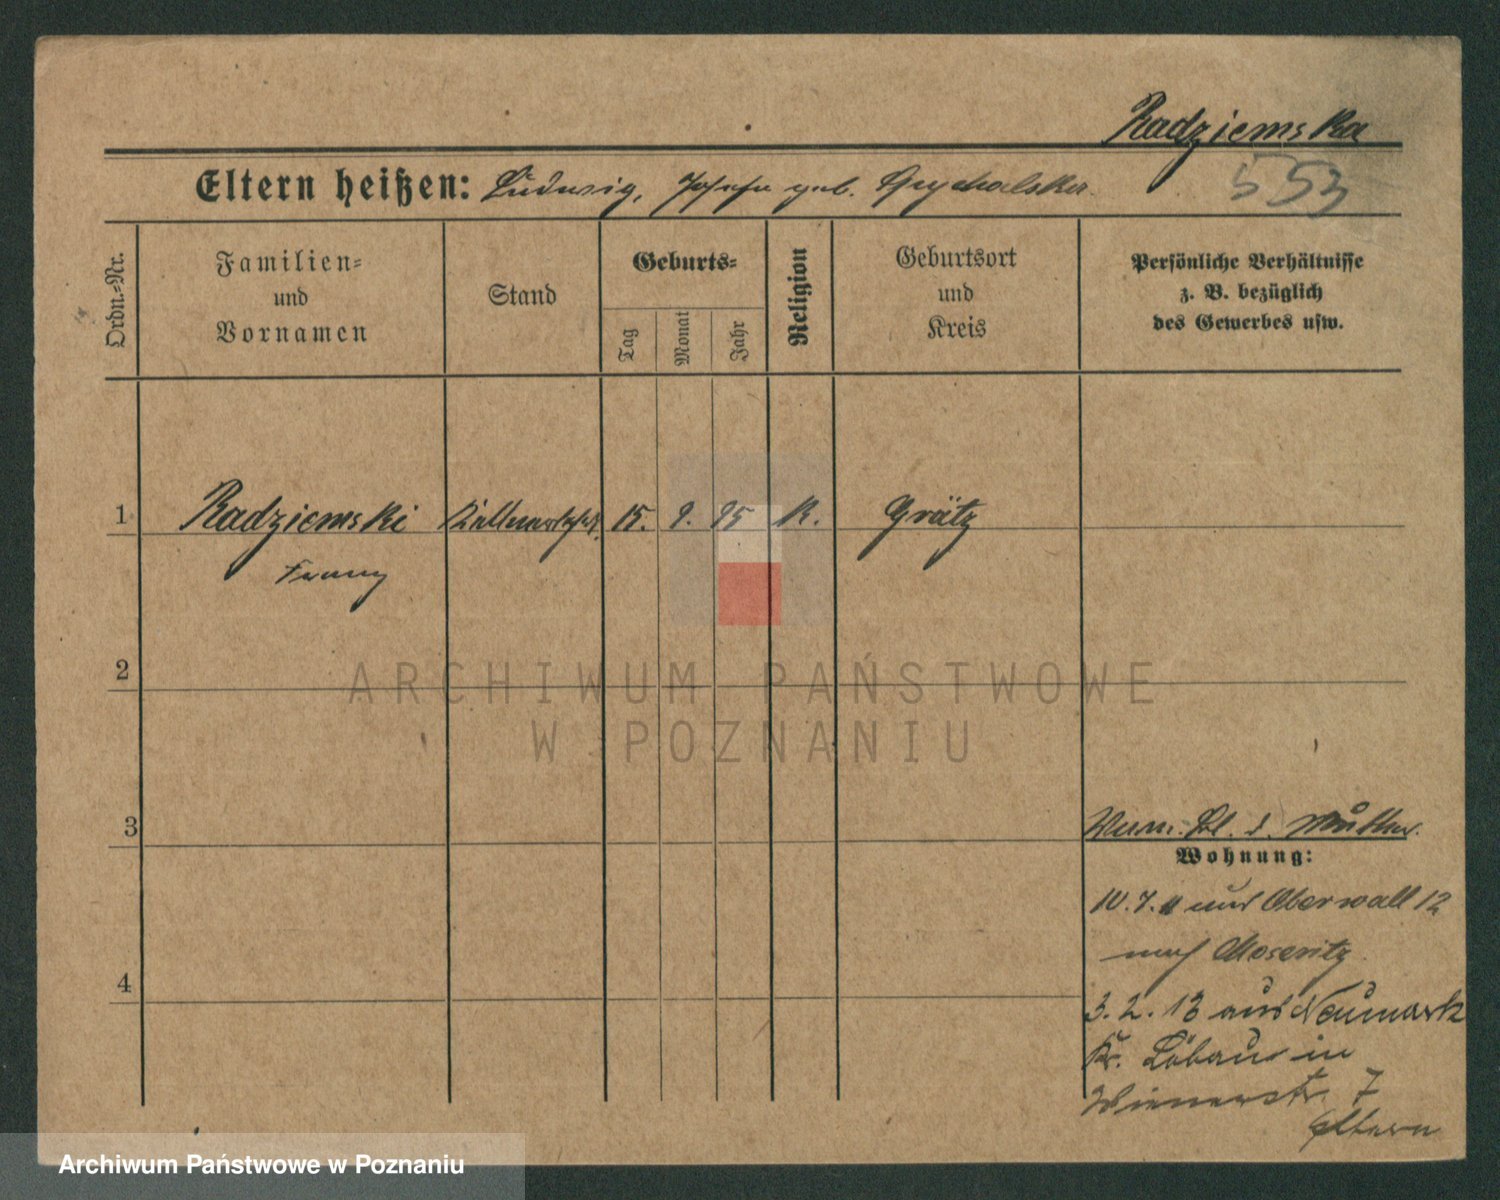 Radziemska
553
Eltern heißen: Ludwig, Josefa geb. Grychalska
Ordn.=Nr.
Familien=
und
Vornamen
Stand
Geburts=
Tag
Monat
Jahr
Religion
Geburtsort
und
Kreis
Persönliche Verhältnisse
z. B. bezüglich
des Gewerbes usw.
1 Radziemski 15. 9. 95 K. Grätz
Franz
2
3
Mutter.
Wohnung:
10.7.11 aus Oberwall 12
nach Meseritz
4
3.2.13 aus Neumark
Kr. Löbau in
Wienerstr. 7
Eltern
ARCHIWUM PAŃSTWOWE
W POZNANIU
Archiwum Państwowe w Poznaniu